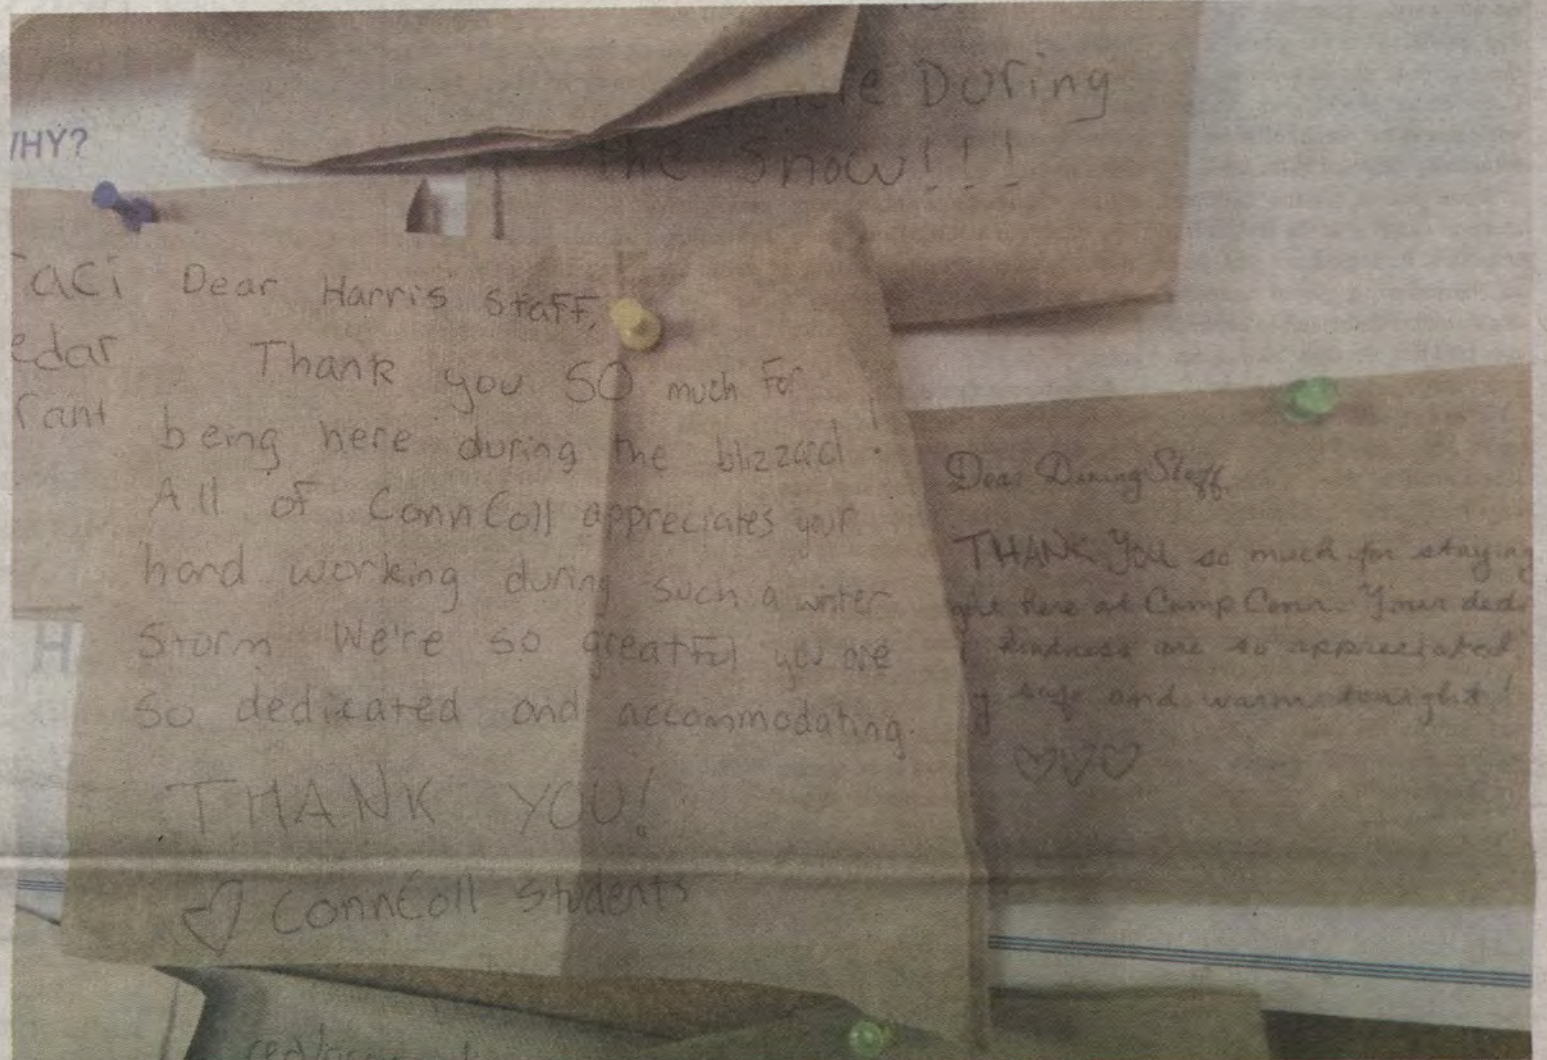 During
the Snow!!!
WHY?
Dear Harris Staff,
Thank you SO much for
being here during the blizzard!
All of ConnColl appreciates your
hard working during such a winter
storm. We're so greatful you are
so dedicated and accommodating.
THANK YOU!
♡ ConnColl Students
Dear Dining Staff,
THANK YOU so much for staying
here at Camp Conn. Your
kindness are so appreciated
safe and warm tonight!
♡♡♡
aci
edar
rant
H